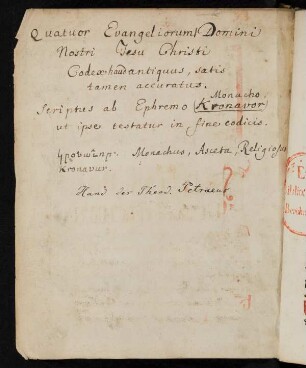 Quatuor Evangeliorum Domini
Nostri Jesu Christi
Codex haud antiquus, satis
tamen accuratus.
Monacho
Scriptus ab Ephremo Kronavor
ut ipse testatur in fine codicis.
կրօնաւոր. Monachus, Asceta, Religiosus
Kronavur.
Hand des Theod. Petraeus